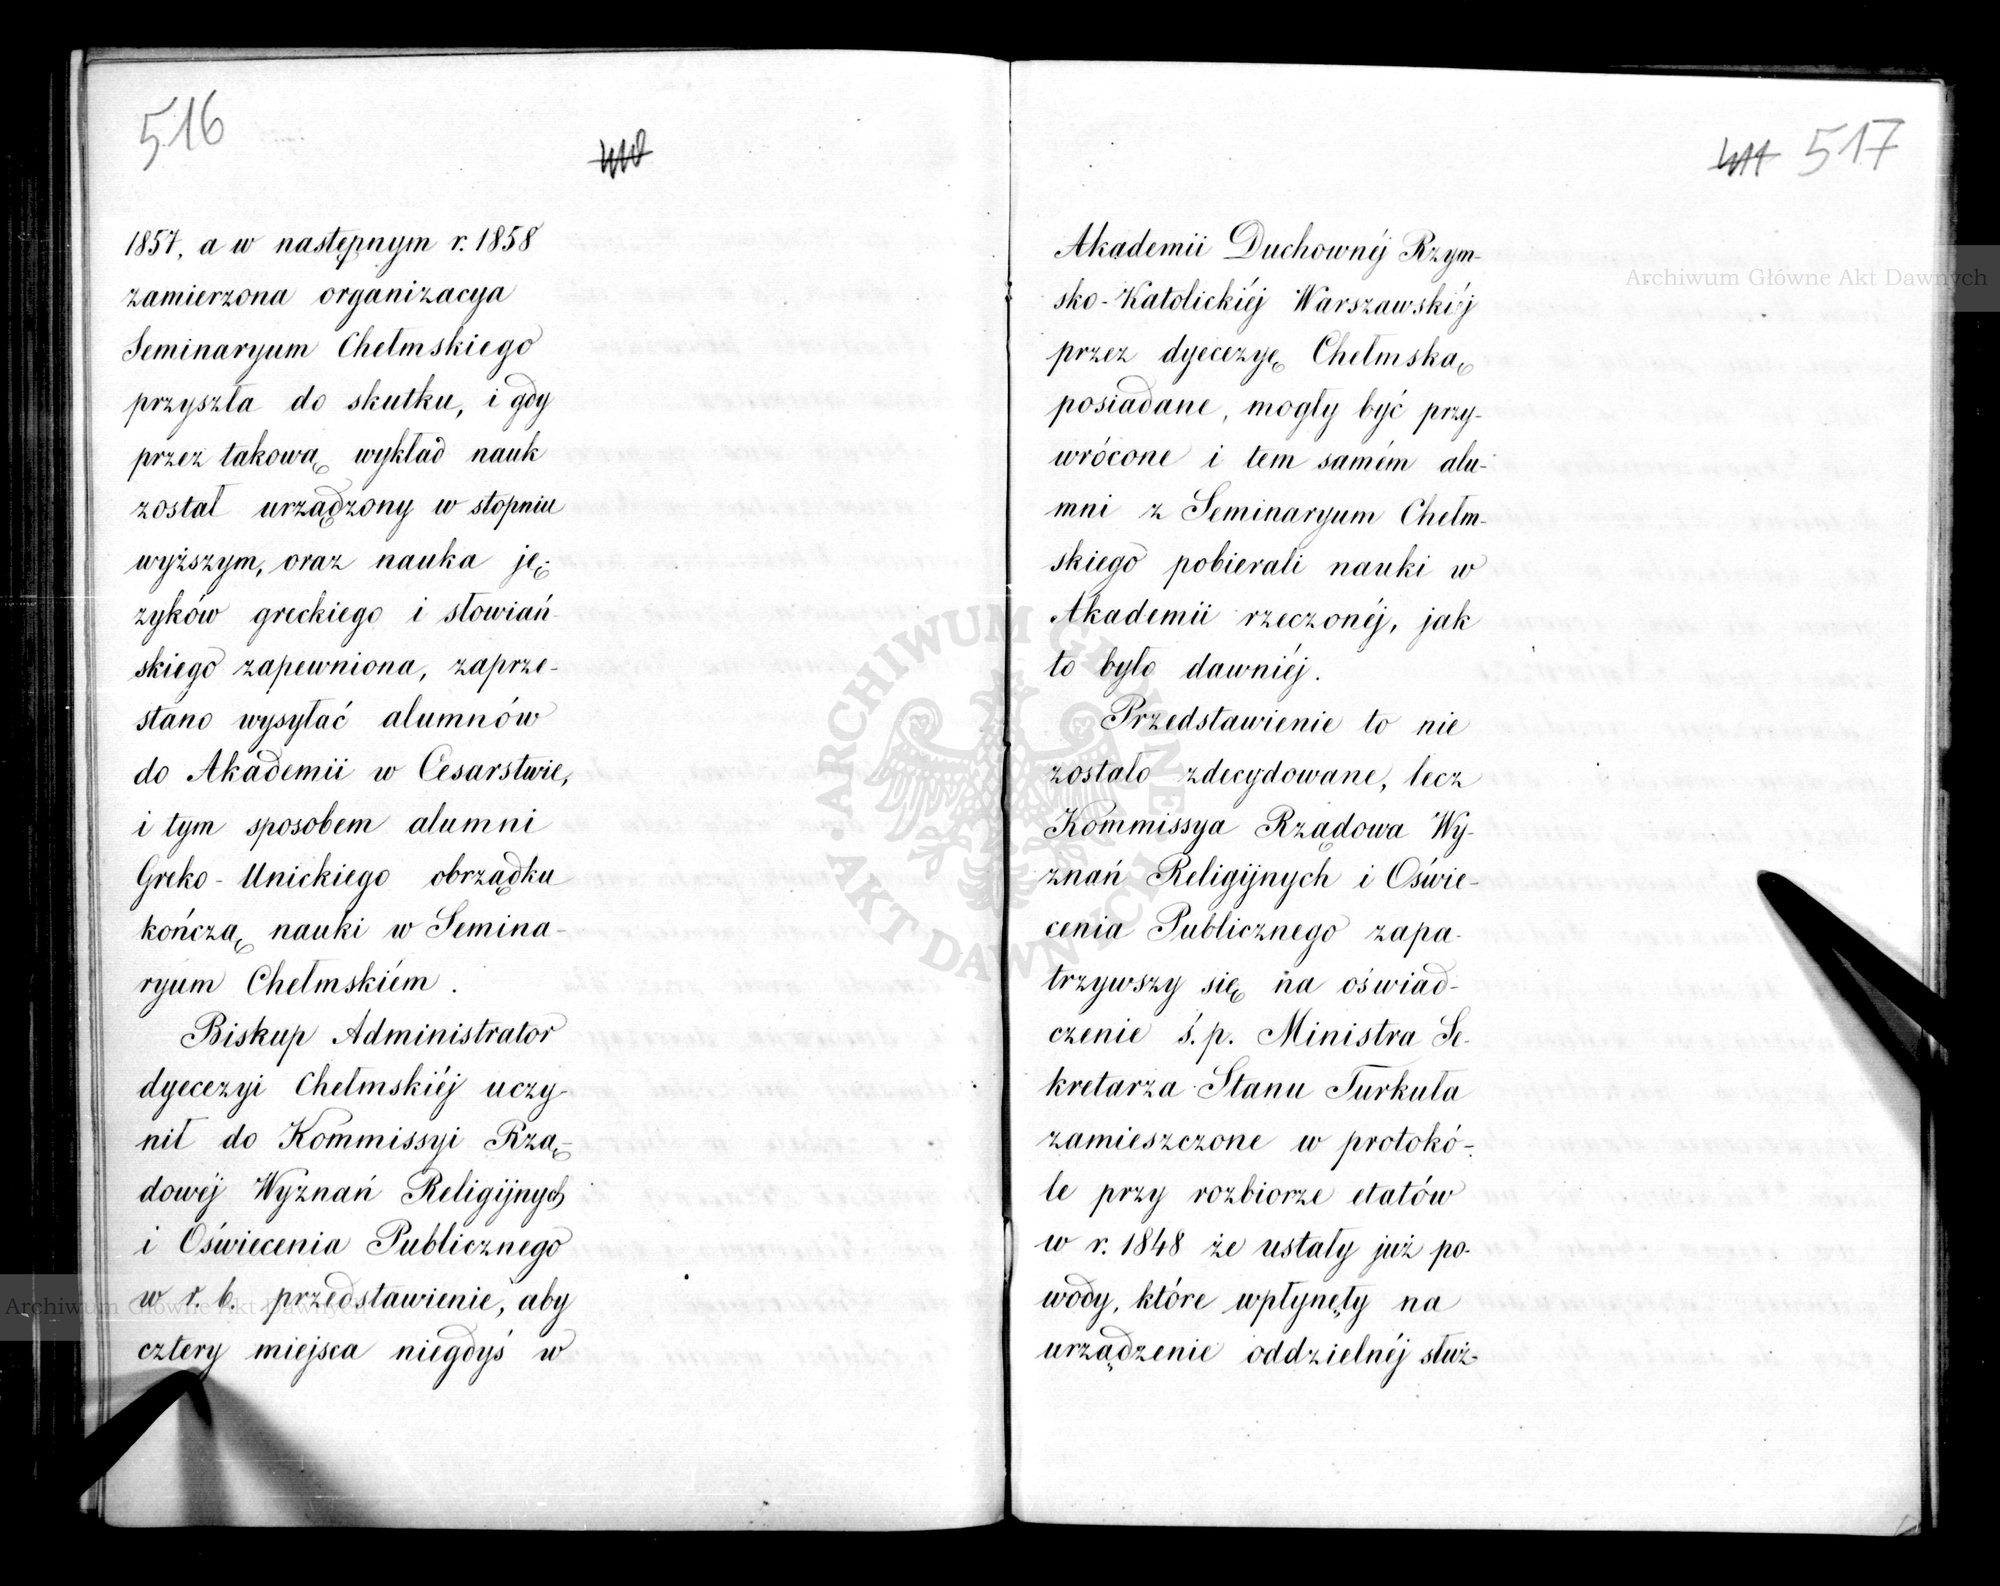 516
1857, a w następnym r. 1858
zamierzona organizacya
Seminaryum Chełmskiego
przyszła do skutku, i gdy
przez takową wykład nauk
został urządzony w stopniu
wyższym, oraz nauka ję-
zyków greckiego i słowiań-
skiego zapewniona, zaprze-
stano wysyłać alumnów
do Akademii w Cesarstwie,
i tym sposobem alumni
Greko-Unickiego obrządku
kończą nauki w Semina-
ryum Chełmskiém.
Biskup Administrator
dyecezyi Chełmskiéj uczy-
nił do Kommissyi Rzą-
dowéj Wyznań Religijnych
i Oświecenia Publicznego
w r. b. przedstawienie, aby
cztery miejsca niegdyś w
517
Akademii Duchownéj Rzym-
sko-Katolickiéj Warszawskiéj
przez dyecezyę Chełmską
posiadane, mogły być przy-
wrócone i tem samém alu-
mni z Seminaryum Chełm-
skiego pobierali nauki w
Akademii rzeczonéj, jak
to było dawniéj.
Przedstawienie to nie
zostało zdecydowane, lecz
Kommissya Rządowa Wy-
znań Religijnych i Oświe-
cenia Publicznego zapa-
trzywszy się na oświad-
czenie ś. p. Ministra Se-
kretarza Stanu Turkuła
zamieszczone w protokó-
le przy rozbiorze etatów
w r. 1848 że ustały już po-
wody, które wpłynęły na
urządzenie oddzielnéj służ-
Archiwum Główne Akt Dawnych
Archiwum Główne Akt Dawnych
ARCHIWUM GŁÓWNE
AKT DAWNYCH